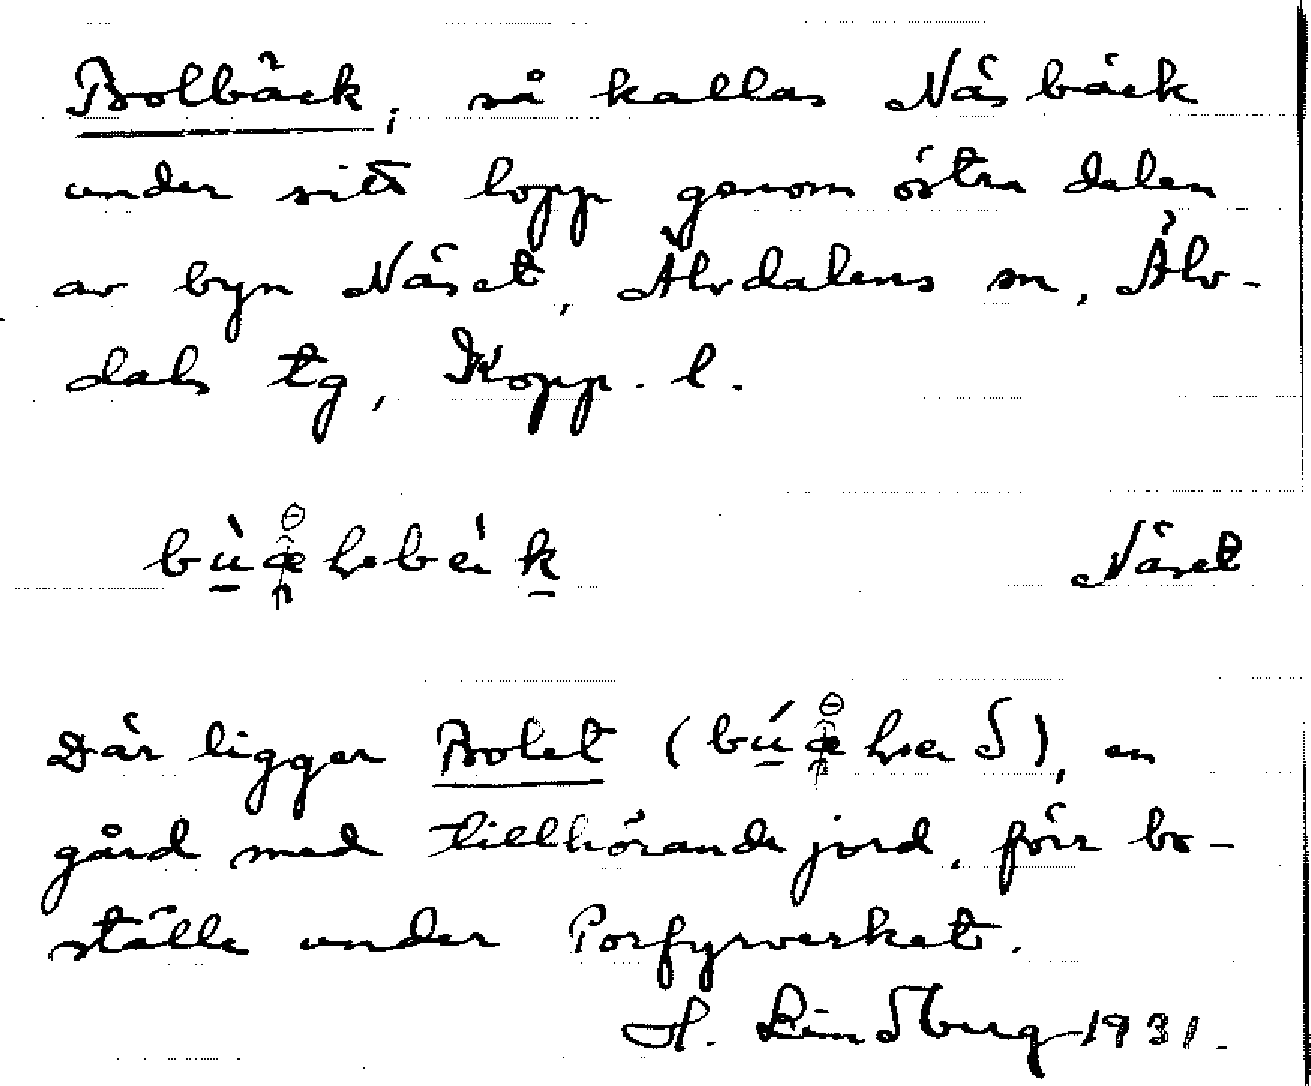 Bolbäck, så kallas Näsbäck
under sitt lopp genom östra dalen
av byn Näset, Älvdalens sn, Älv-
dals tg, Kopp. l.
Näset
Där ligger Bolet (
), en
gård med tillhörande jord, förr bo-
ställe under Porfyrverket.
H. Lindberg 1931.